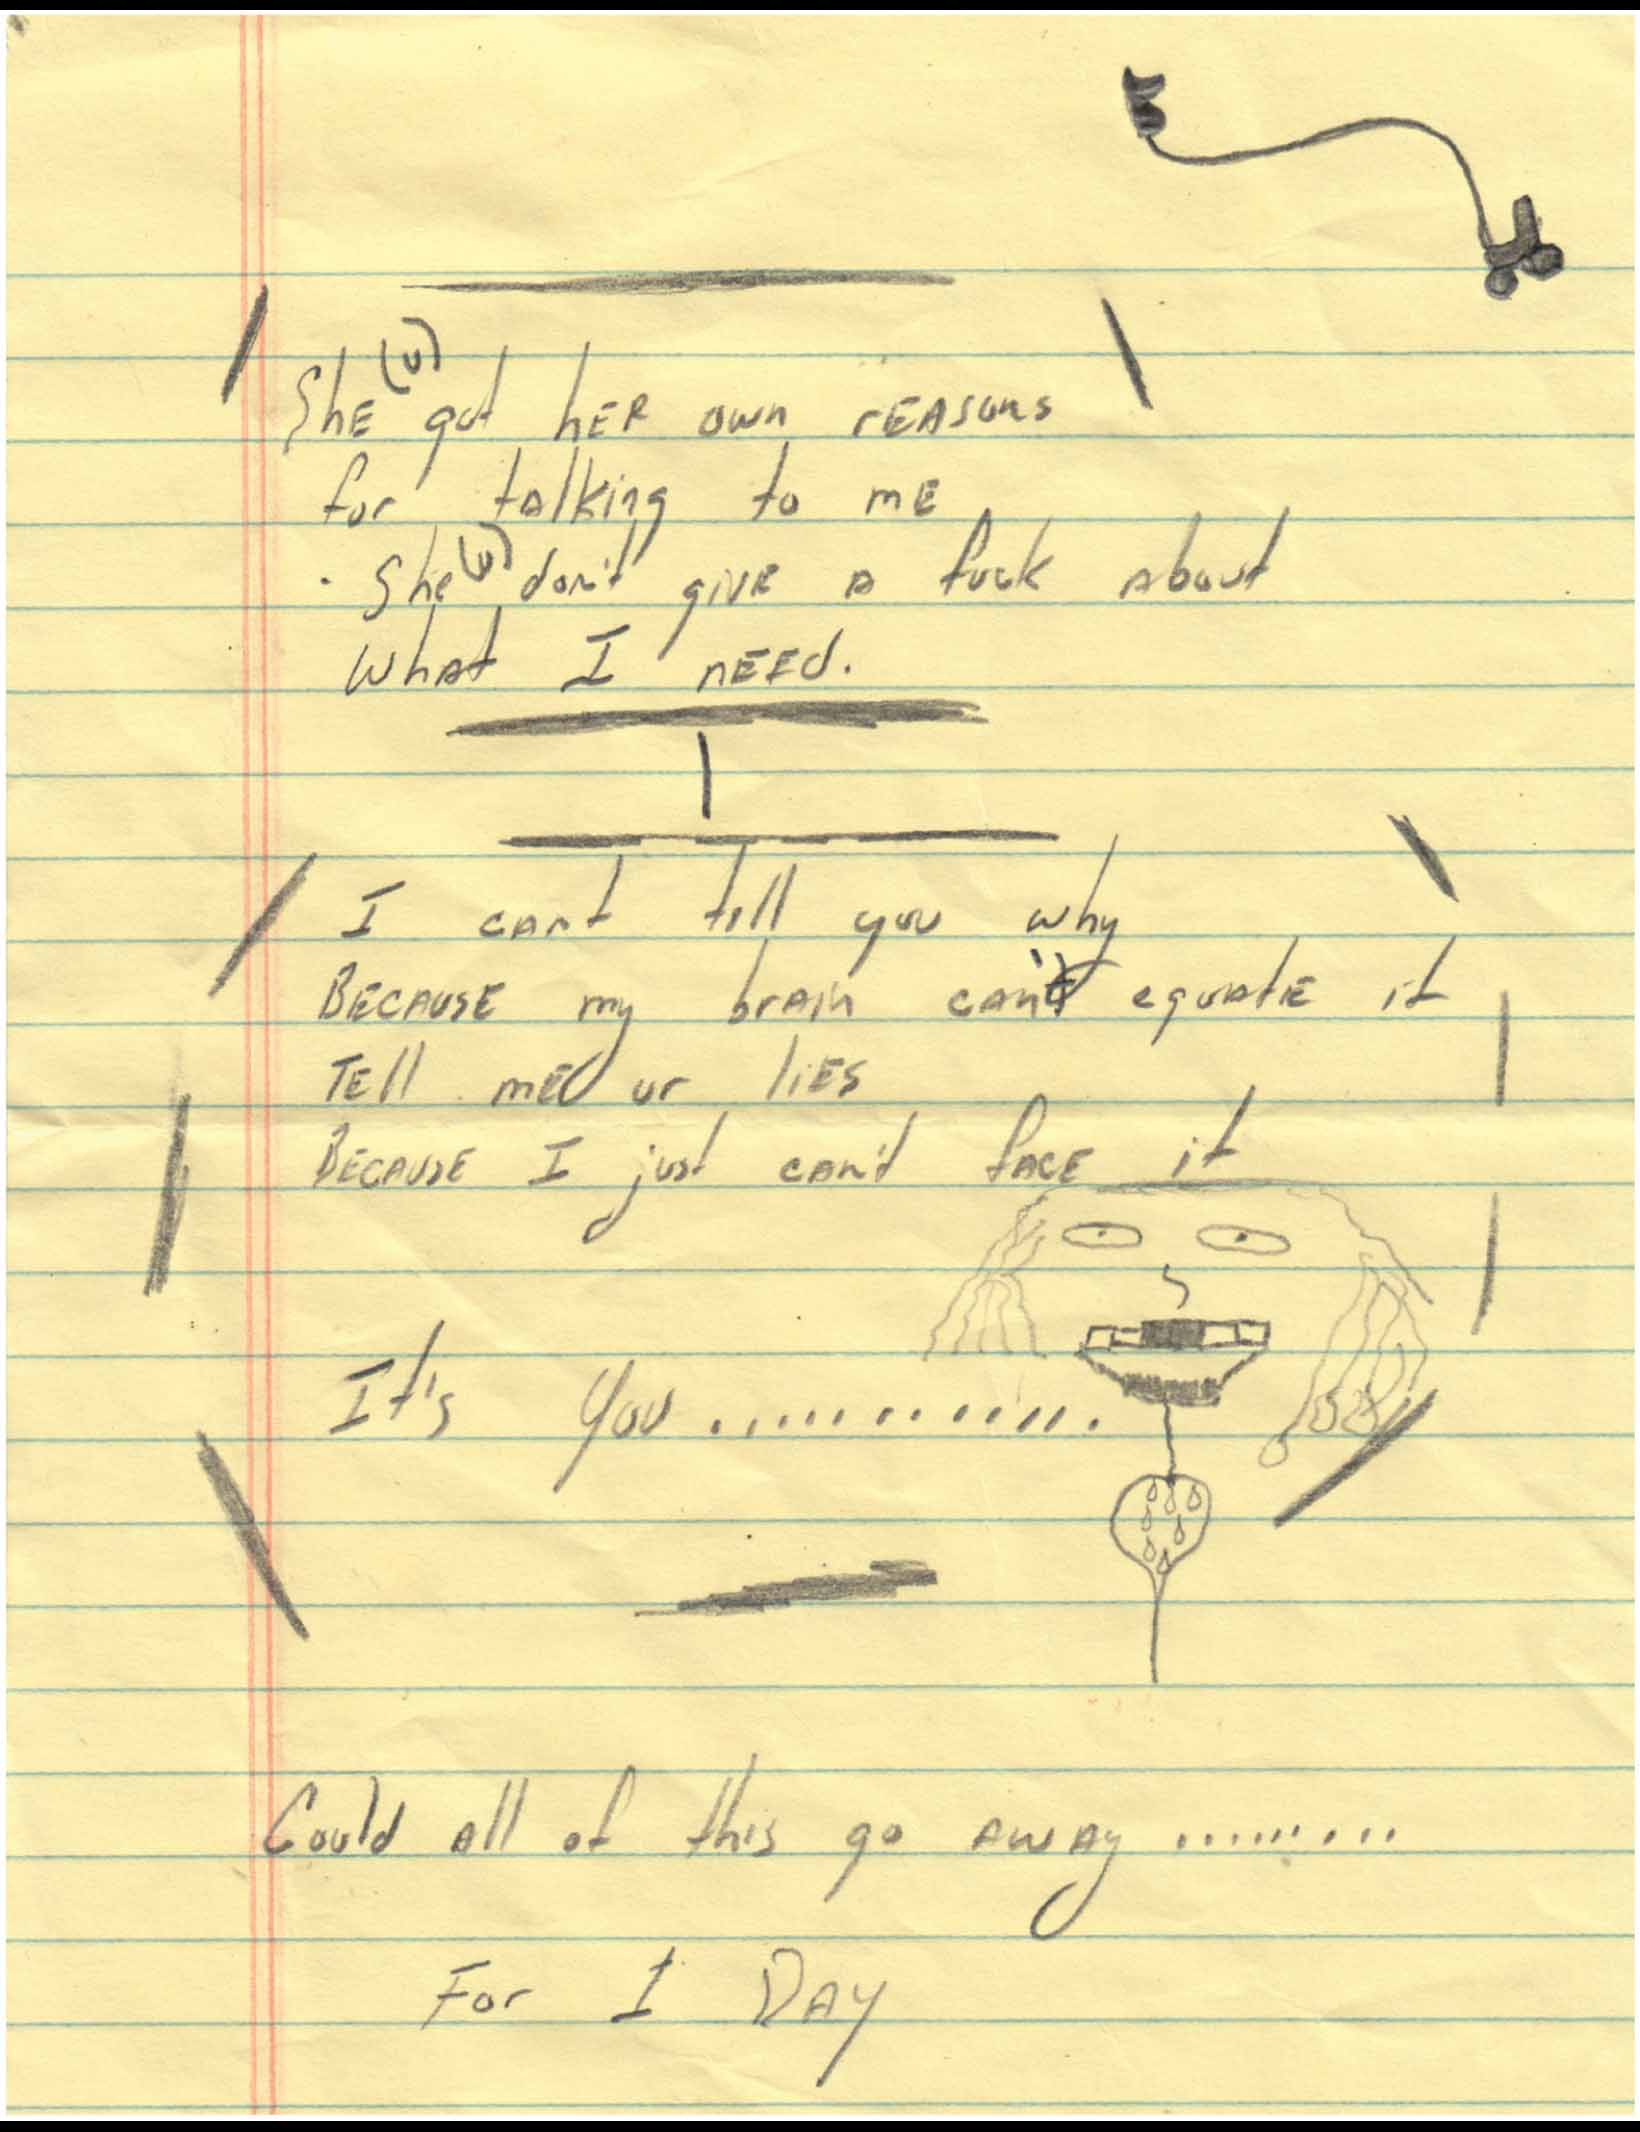 She (u) got her own reasons
for talking to me
She (u) don't give a fuck about
what I need.
I can't tell you why
Because my brain can't equate it
Tell me ur lies
Because I just can't face it
It's You ..............
Could all of this go away .........
For 1 Day